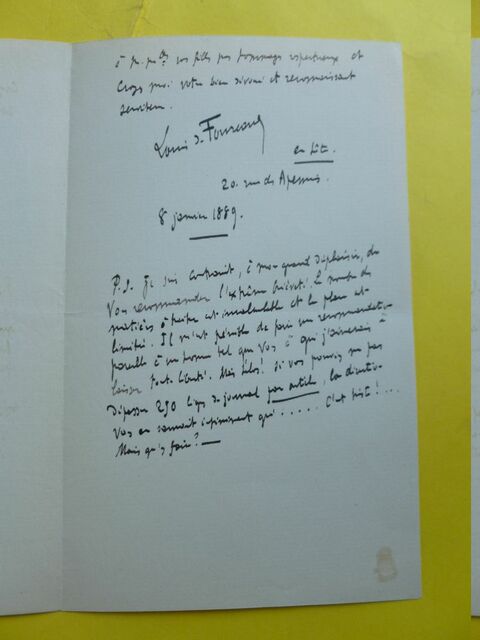 à M. vos fils mes hommages respectueux et
Croyez moi votre bien dévoué et reconnaissant
serviteur.
Louis de Fourcaud
en hâte.
20. rue des Apennins.
8 janvier 1889.
P.S. Je suis contraint, à mon grand déplaisir, de
vous recommander l'extrême brièveté. Le nombre des
matières à traiter est incalculable et la place est
limitée. Il m'est pénible de faire une recommandation
pareille à un homme tel que vous à qui j'aimerais à
laisser toute liberté. Mais hélas! Si vous pouviez ne pas
dépasser 250 lignes de journal par article, la direction
vous en saurait infiniment gré..... C'est triste!...
Mais qu'y faire?